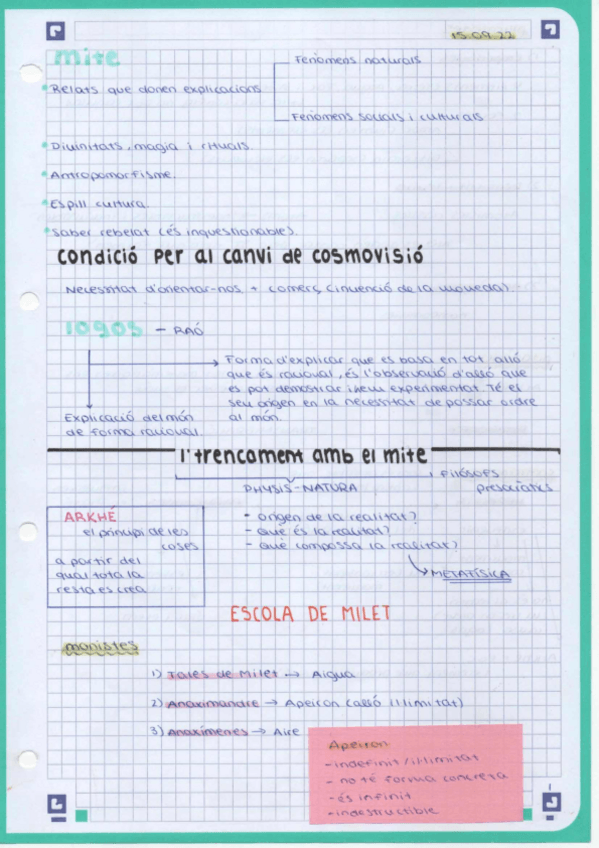 15.09.22
mite
Fenòmens naturals
Relats que donen explicacions
Fenòmens socials i culturals
Divinitats, magia i rituals.
Antropomorfisme.
Espill cultura.
Saber rebelat (és inqüestionable).
condició per al canvi de cosmovisió
Necessitat d'orientar-nos + comerç (invenció de la moneda)
logos - RAÓ
Forma d'explicar que es basa en tot allò
que és racional, és l'observació d'allò que
es pot demostrar i hem experimentat. Té el
seu origen en la necessitat de possar ordre
al món.
Explicació del món
de forma racional.
l'trencament amb el mite
PHYSIS-NATURA
Filòsofs
presocràtics
ARKHÉ
el principi de les
coses
a partir del
qual tota la
resta es crea
- Origen de la realitat?
- Què és la realitat?
- Què compossa la realitat?
METAFÍSICA
ESCOLA DE MILET
monistes
1) Tales de Milet → Aigua
2) Anaximandre → Apeiron (allò il·limitat)
3) Anaxímenes → Aire
Apeiron
- indefinit / il·limitat
- no té forma concreta
- és infinit
- indestructible